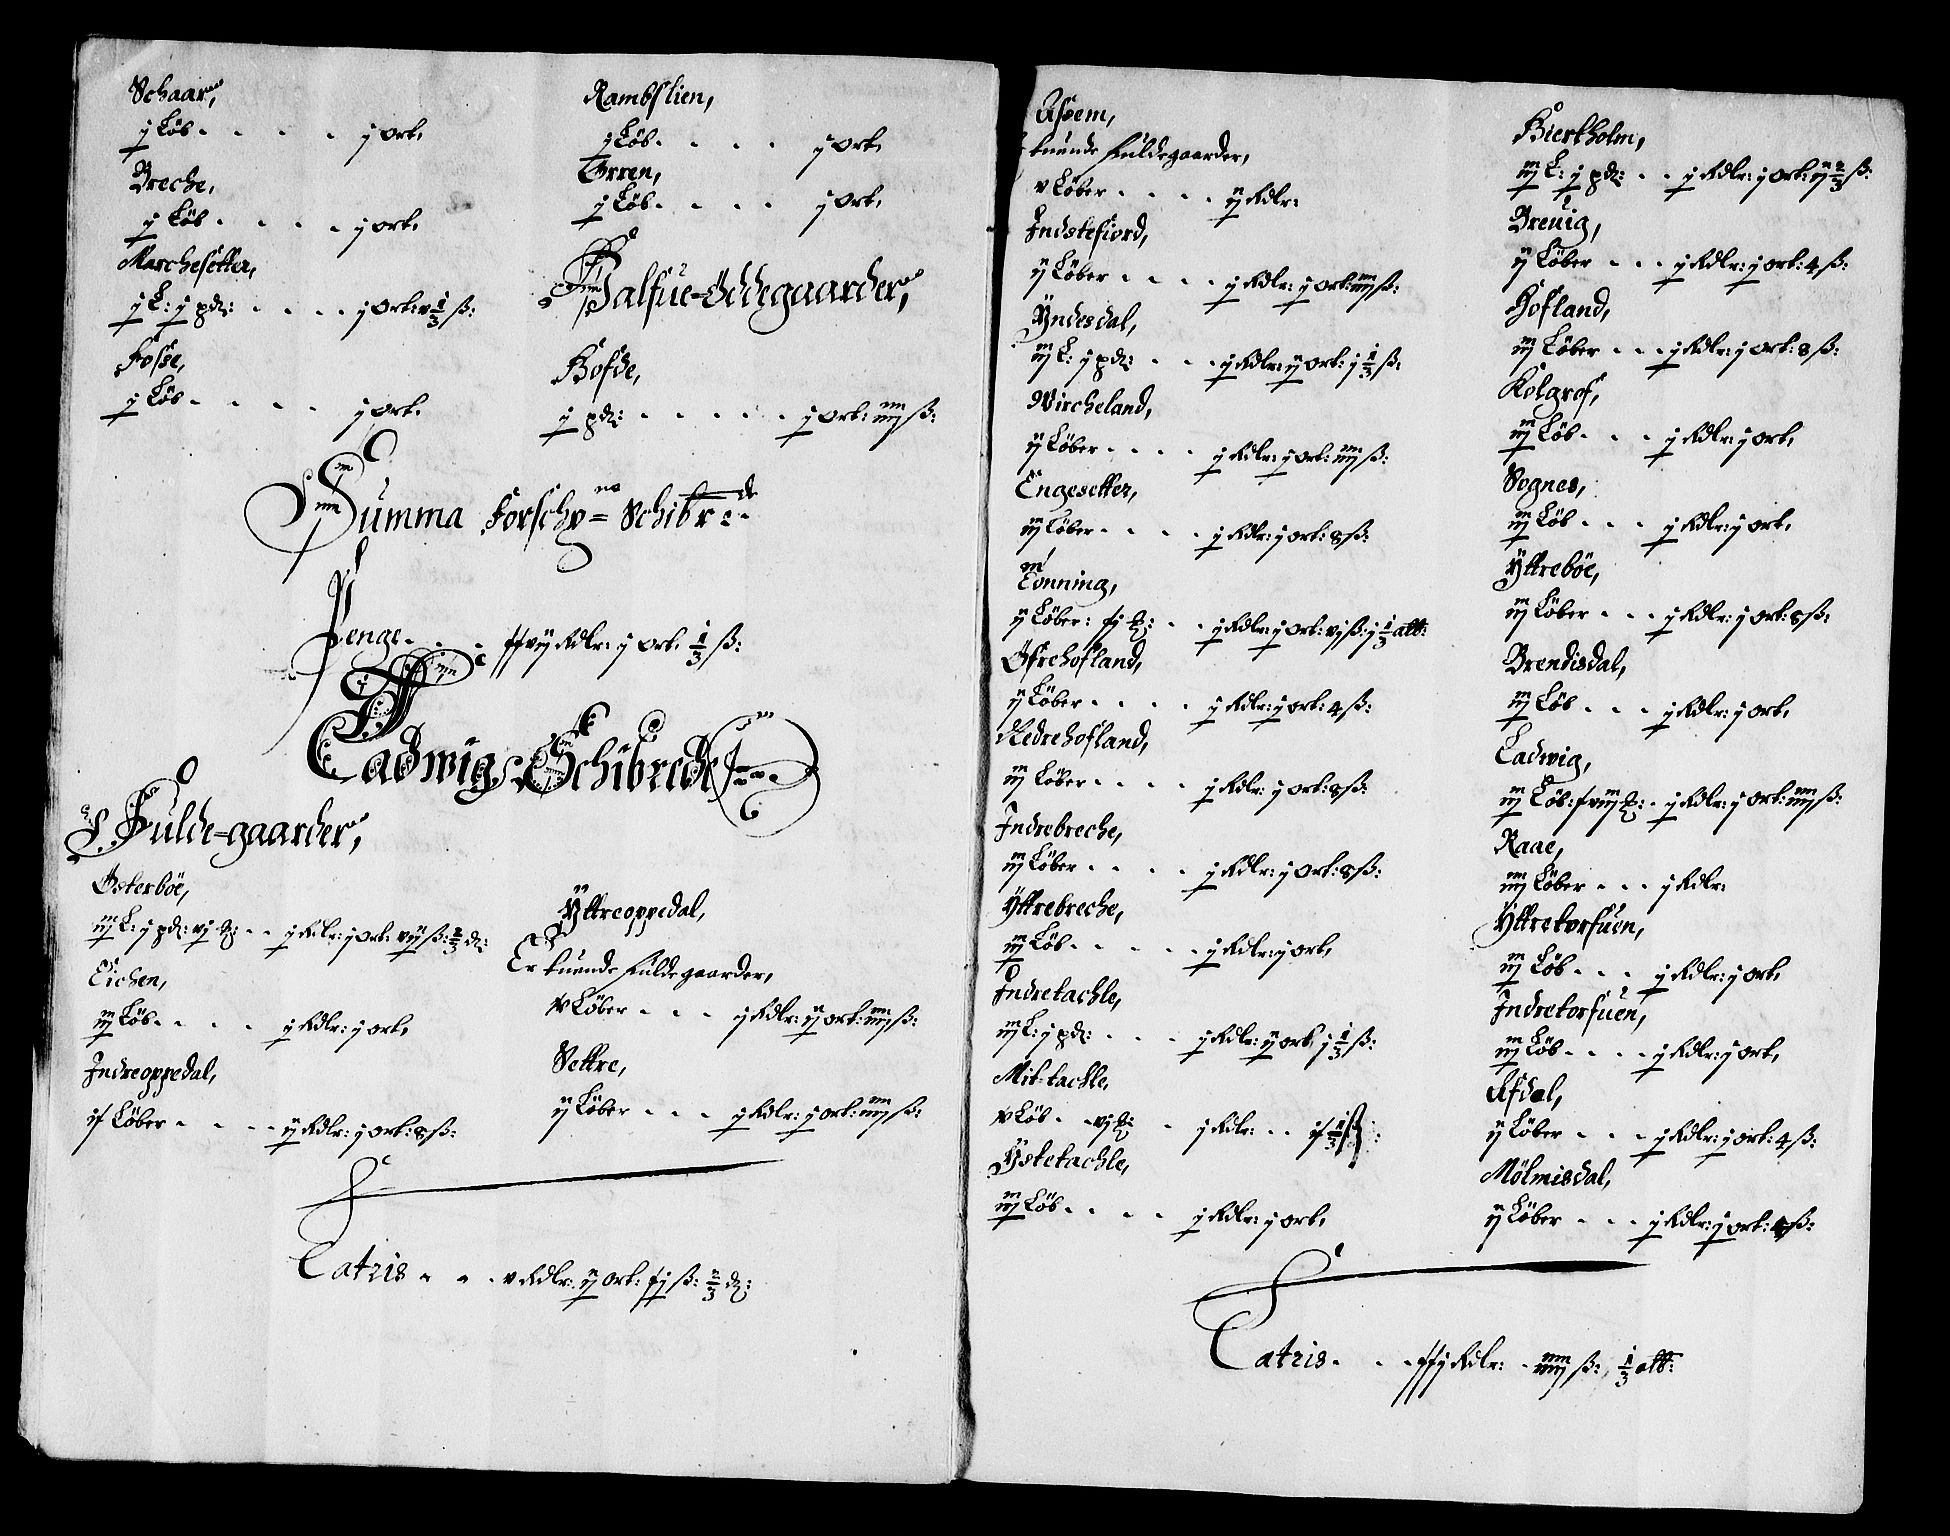 Schaar,
j Löb . . . . j ort,
Breche,
j Löb . . . . j ort,
Marchesetter,
j L: j pd: . . . . j ort: v 1/3 ß:
Fosse,
j Löb . . . . j ort,
Rambslien,
j Löb . . . . j ort,
Orren,
j Löb . . . . j ort,
Halfue-Öddegaarder,
Hofde,
j pd: . . . . . j ort: iiij ß:
Summa Forschr: Schibr:
Penge . . . xxvij Rdlr: j ort, 1/3 ß:
Ladwigs Schibrede
Fulde-gaarder,
Österböe,
iij L: j pd: vj . . j Rdlr: j ort: vij ß: 2/3 d:
Eichen,
iij Löb . . . . j Rdlr: j ort,
Indreoppedal,
ix Löber . . . . ij Rdlr: j ort: 8 ß:
Yttreoppedal,
Er tuende fuldegaarder,
v Löber . . . j Rdlr: ij ort: iiij ß:
Settre,
ij Löber . . . j Rdlr: j ort: iiij ß:
Latris . . . v Rdlr: ij ort: xj ß: 2/3 d:
Aseem,
tuende fuldegaarder,
v Löber . . . . ij Rdlr:
Indstefiord,
ij Löber . . . . j Rdlr: j ort: iiij ß:
Yndesdal,
iij L: j pd: . . . j Rdlr: ij ort: j 1/3 ß:
Wircheland,
ij Löber . . . . j Rdlr: j ort: iiij ß:
Engesetter,
iij Löber . . . . j Rdlr: j ort: 8 ß:
Tonning,
ij Löber: xj . . j Rdlr: j ort: vj ß: j 1/3 alb:
Öfrehofland,
ij Löber . . . . j Rdlr: j ort: 4 ß:
Nedrehofland,
iij Löber . . . . j Rdlr: j ort: 8 ß:
Indrebreche,
iij Löber . . . . j Rdlr: j ort: 8 ß:
Yttrebreche,
iij Löb . . . . . j Rdlr: j ort,
Indretachle,
iij L: j pd: . . . . j Rdlr: ij ort, j 1/3 ß:
Mit-tachle,
v Löb . . vj . j Rdlr: . . ix 1/3 ß:
Ystetachle,
iij Löb . . . . j Rdlr: j ort,
Biertholm,
iij L: j pd: . . j Rdlr: j ort: ij 2/3 ß:
Breuig,
ij Löber . . . j Rdlr: j ort: 4 ß:
Hofland,
iij Löber . . . j Rdlr: j ort: 8 ß:
Kolgrof,
iij Löb . . . j Rdlr: j ort,
Sognes,
iij Löb . . . j Rdlr: j ort,
Yttreböe,
iij Löber . . . j Rdlr: j ort: 8 ß:
Brendisdal,
iij Löb . . . j Rdlr: j ort,
Ladwig,
iij Löb: xviij . j Rdlr: j ort: iiij ß:
Raae,
iiij Löber . . . j Rdlr:
Yttretorfuen,
iij Löb . . . j Rdlr: j ort,
Indretorfuen,
iij Löb . . . . j Rdlr: j ort,
Afdal,
ij Löber . . . j Rdlr: j ort: 4 ß:
Mölmisdal,
ij Löber . . . j Rdlr: j ort: 4 ß:
Latris . . . xxxj Rdlr: . iiij ß: 1/3 alb: